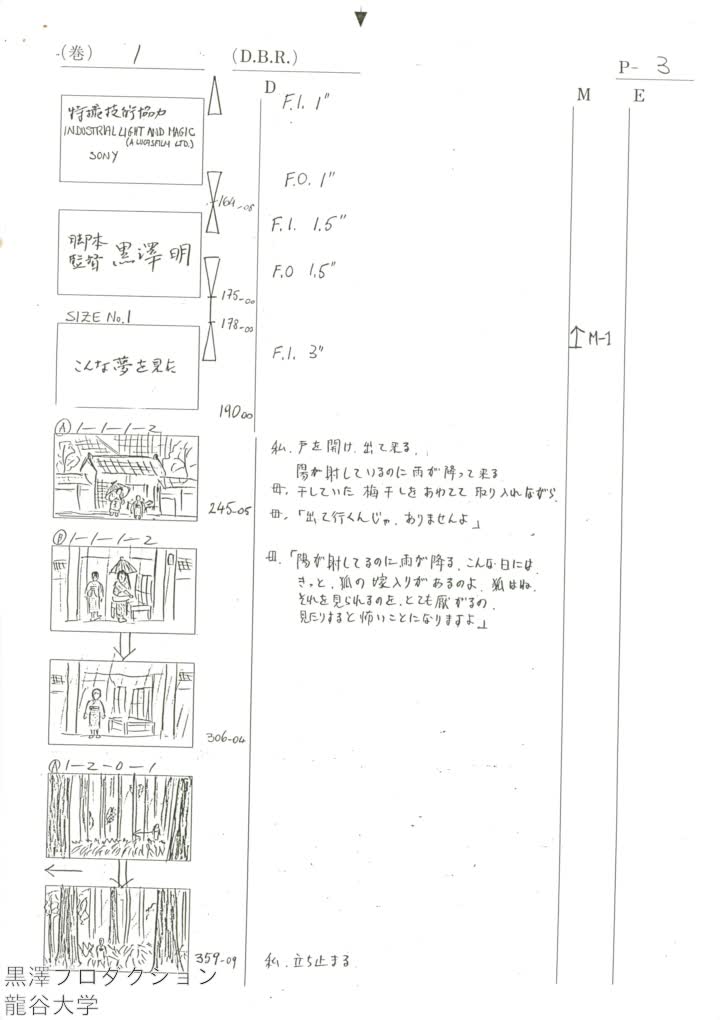 (巻) 1
(D.B.R.)
P- 3
D
M
E
特撮技術協力
INDUSTRIAL LIGHT AND MAGIC
(A LUCASFILM LTD.)
SONY
F.I. 1"
F.O. 1"
164-08
脚本
監督 黒澤 明
F.I. 1.5"
F.O 1.5"
175-00
SIZE No.1
178-00
こんな夢を見た
F.I. 3"
M-1
190 00
Ⓐ 1-1-1-2
私、戸を開け、出て来る、
陽が射しているのに雨が降って来る
母、干していた 梅干しをあわてて 取り入れながら、
245-05
母、「出て行くんじゃ、ありませんよ」
Ⓑ 1-1-1-2
母、「陽が射してるのに、雨が降る、こんな日には、
きっと、狐の嫁入りがあるのよ、狐はね、
それを見られるのを、とても厭がるの、
見たりすると怖いことになりますよ」
306-04
Ⓐ 1-2-0-1
359-09
私、立ち止まる
黒澤プロダクション
龍谷大学